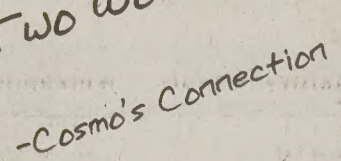 Two
-Cosmo's Connection